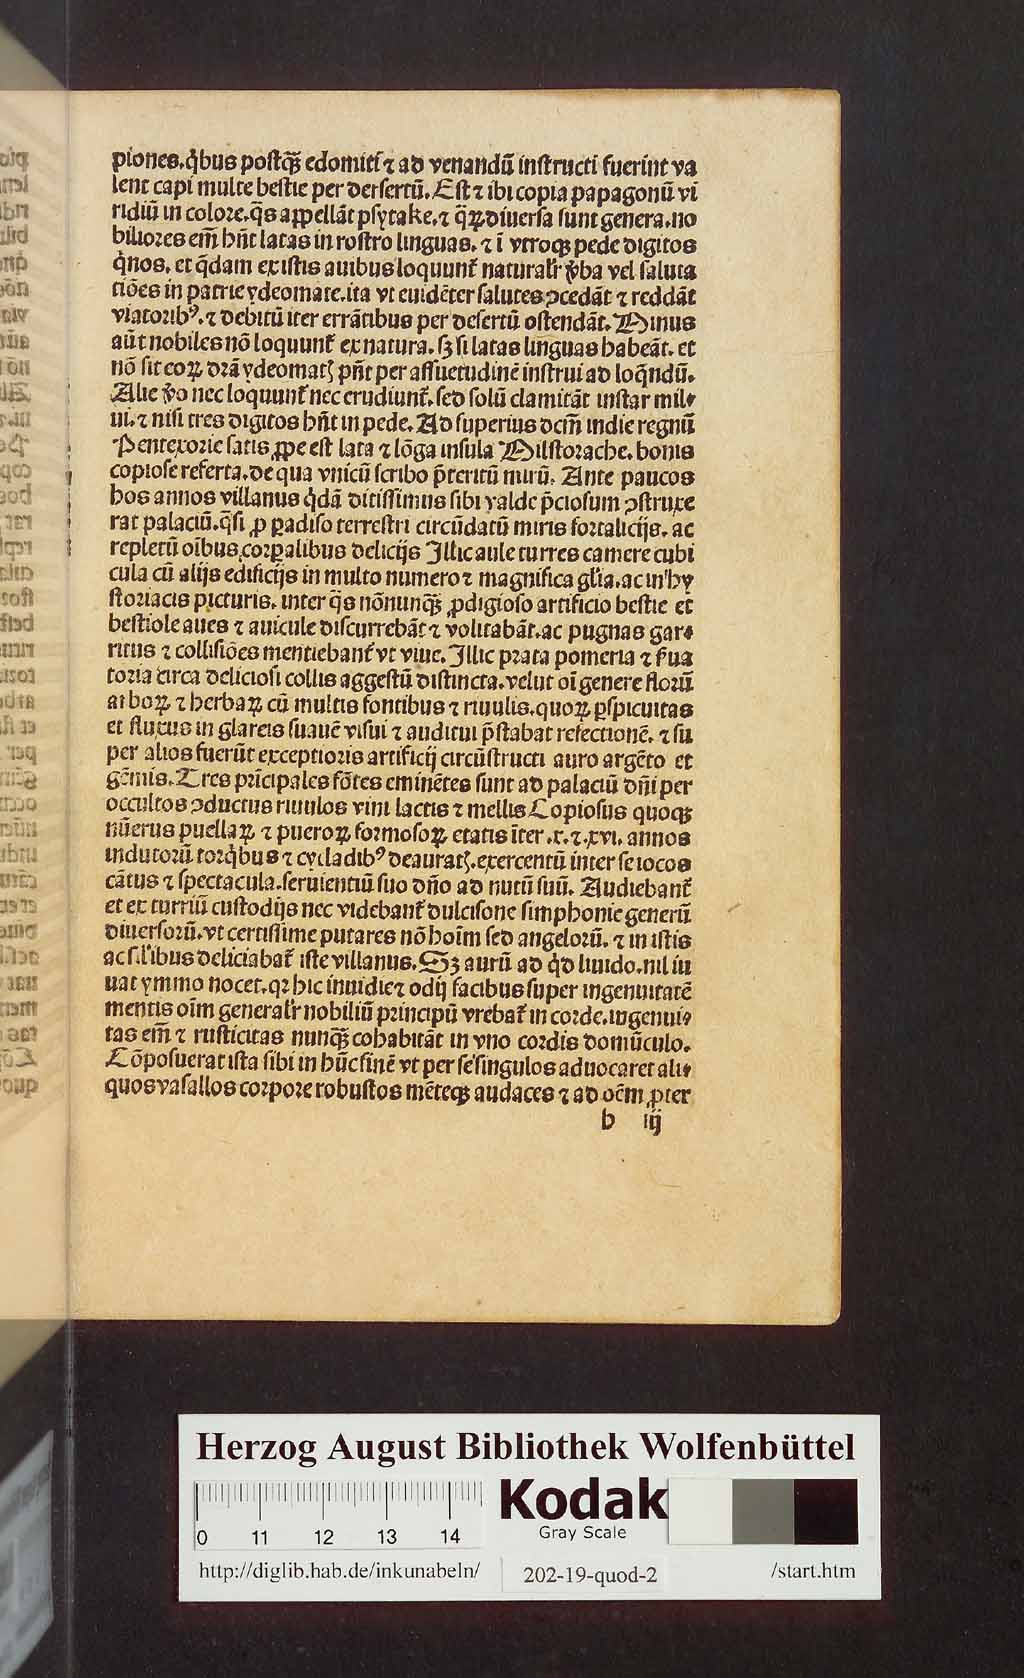 piones. q̇bus postq̄ꝫ edomiti ⁊ ad venandū instructi fuerint va
lent capi multe bestie per desertū. Est ⁊ ibi copia papagonū vi
ridiū in colore. q̄s appellāt psytake. ⁊ q̄ꝝ diuersa sunt genera. no
biliores em̄ hn̄t latas in rostro linguas. ⁊ ī vtroqꝫ pede digitos
q̇nos. et q̄dam ex istis auibus loquunt᷑ naturalr̄ v̄ba vel saluta
tiōes in patrie ydeomate. ita vt euidēter salutes ↄcedāt ⁊ reddāt
viatoribꝰ. ⁊ debitū iter errātibus per desertū ostendāt. Minus
aūt nobiles nō loquunt᷑ ex natura. sꝫ si latas linguas habeāt. et
nō sit eoꝝ drā ydeomatꝭ pn̄t per assuetudinē instrui ad loq̄ndū.
Alie v̄o nec loquunt᷑ nec erudiunt᷑. sed solū clamitāt instar mil-
ui. ⁊ nisi tres digitos hn̄t in pede. Ad superius dcm̄ indie regnū
Pentexorie satis ꝓpe est lata ⁊ lōga insula Milstorache. bonis
copiose referta. de qua vnicū scribo p̄teritū mirū. Ante paucos
hos annos villanus q̇dā ditissimus sibi valde p̄ciosum ↄstruxe
rat palaciū. q̄si ꝓ ꝑadiso terrestri circūdatū miris fortalicijs. ac
repletū oībus corꝑalibus delicijs Illic aule turres camere cubi
cula cū alijs edificijs in multo numero ⁊ magnifica glīa. ac in hy
storiacis picturis. inter q̄s nōnunq̄ꝫ ꝓdigioso artificio bestie et
bestiole aues ⁊ auicule discurrebāt ⁊ volitabāt. ac pugnas gar-
ritus ⁊ collisiōes mentiebant᷑ vt viue. Illic prata pomeria ⁊ fua
toria circa deliciosi collis aggestū distincta. velut oī genere florū
arboꝝ ⁊ herbaꝝ cū multis fontibus ⁊ riuulis. quoꝝ ꝑspicuitas
et fluxus in glareis suauē visui ⁊ auditui p̄stabat refectionē. ⁊ su
per alios fuerūt exceptioris artificij circūstructi auro argēto et
gēmis. Tres prīcipales fōtes eminētes sunt ad palaciū dn̄i per
occultos ↄductus riuulos vini lactis ⁊ mellis Copiosus quoqꝫ
nūerus puellaꝝ ⁊ pueroꝝ formosoꝝ etatis īter .x. ⁊ .xvi. annos
indutorū torq̇bus ⁊ cycladibꝰ deauratꝭ. exercentū inter se iocos
cātus ⁊ spectacula. seruientiū suo dn̄o ad nutū suū. Audiebant᷑
et ex turriū custodijs nec videbant᷑ dulcisone simphonie generū
diuersorū. vt certissime putares nō hoīm sed angelorū. ⁊ in istis
ac sil'ibus deliciabat᷑ iste villanus. Sꝫ aurū ad q̇d liuido. nil iu
uat ymmo nocet. qꝛ hic inuidie ⁊ odij facibus super ingenuitatē
mentis oīm generalr̄ nobiliū principū vrebat᷑ in corde. ingenui-
tas em̄ ⁊ rusticitas nunq̄ꝫ cohabitāt in vno cordis domūculo.
Cōposuerat ista sibi in hūc finē vt per se singulos aduocaret ali-
quos vasallos corpore robustos mēteqꝫ audaces ⁊ ad oēm ꝓter
b iij
Herzog August Bibliothek Wolfenbüttel
Kodak
Gray Scale
0 11 12 13 14
http://diglib.hab.de/inkunabeln/ 202-19-quod-2 /start.htm